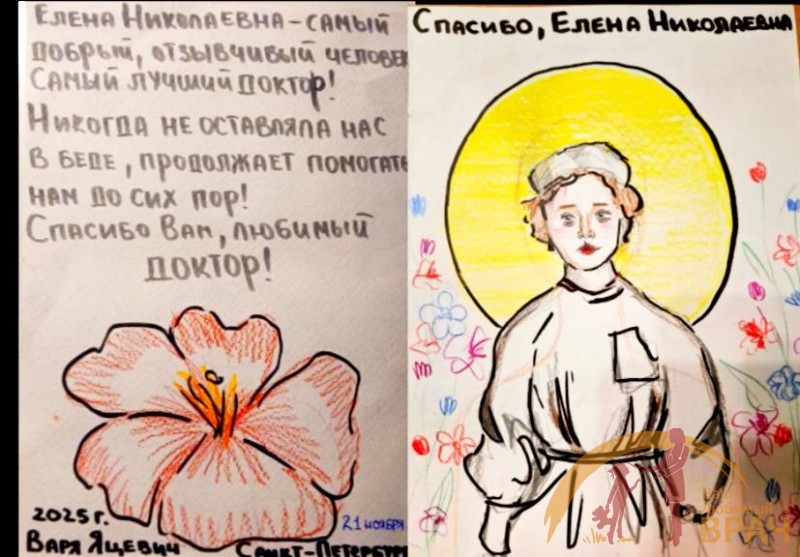 Елена Николаевна-самый
добрый, отзывчивый человек
самый лучший доктор!
Никогда не оставляла нас
в беде, продолжает помогать
нам до сих пор!
Спасибо Вам, любимый
доктор!
2025г.
21 ноября
Варя Яцевич
Санкт-Петербург
Спасибо, Елена Николаевна
любимый
ВРАЧ